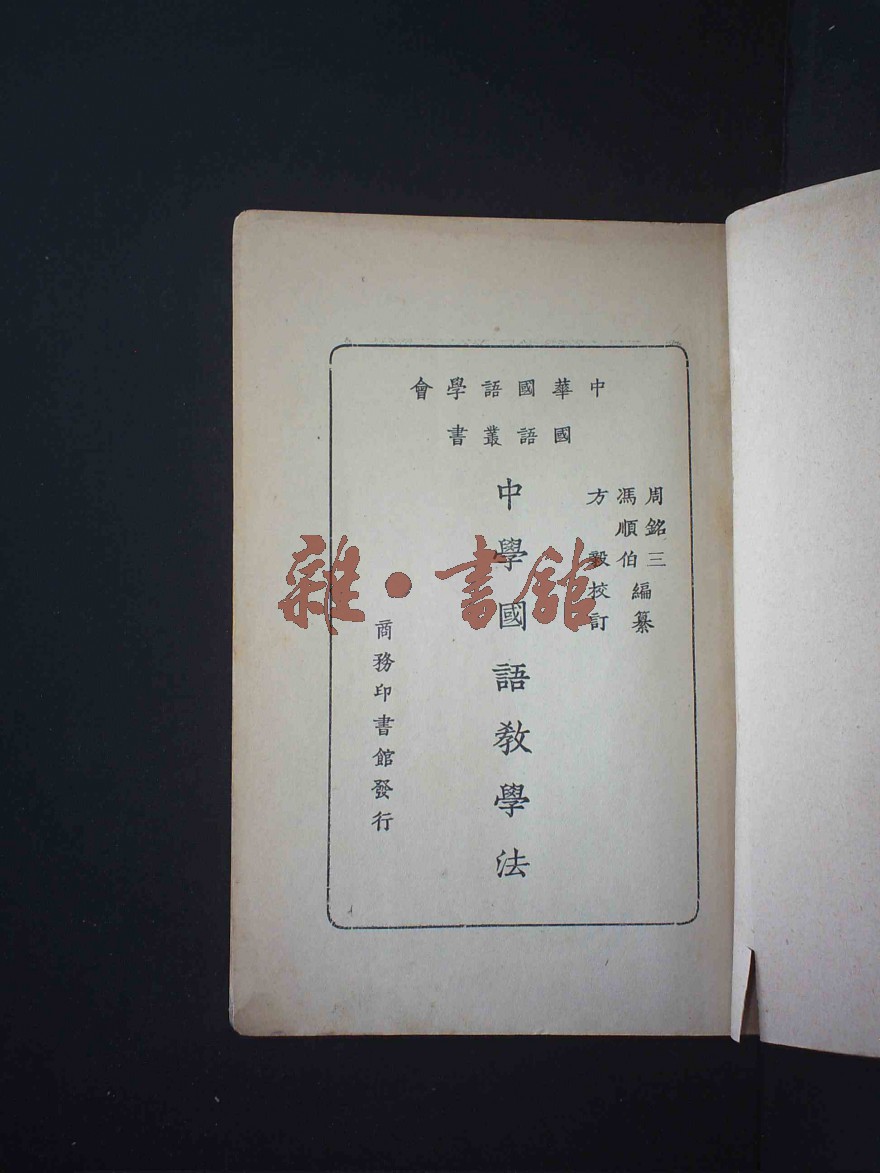 中華國語學會
國語叢書
周銘三
馮順伯
編纂
方毅校訂
中學國語教學法
商務印書館發行
雜·書館